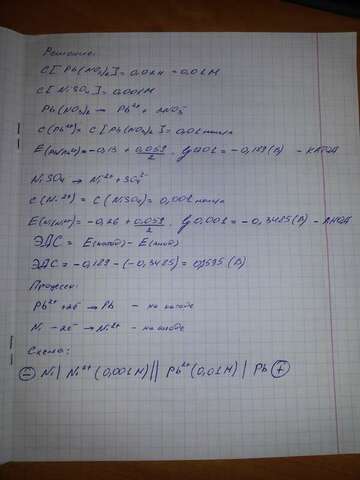 Решение:
C[Pb(NO3)2] = 0,02н = 0,01М
C[NiSO4] = 0,001М
Pb(NO3)2 → Pb²⁺ + 2NO3⁻
C(Pb²⁺) = C[Pb(NO3)2] = 0,01 моль/л
E(Pb/Pb²⁺) = -0,13 + 0,059/2 · lg 0,01 = -0,189 (В) - КАТОД
NiSO4 → Ni²⁺ + SO4²⁻
C(Ni²⁺) = C(NiSO4) = 0,001 моль/л
E(Ni/Ni²⁺) = -0,26 + 0,059/2 · lg 0,001 = -0,3485 (В) - АНОД
ЭДС = E(катод) - E(анод)
ЭДС = -0,189 - (-0,3485) = 0,1595 (В)
Процессы:
Pb²⁺ + 2ē → Pb - на катоде
Ni - 2ē → Ni²⁺ - на аноде
Схема:
⊖ Ni | Ni²⁺ (0,001М) || Pb²⁺ (0,01М) | Pb ⊕